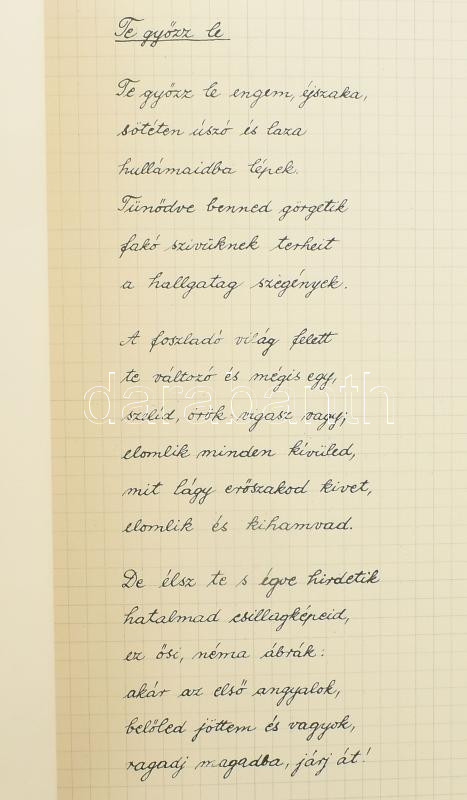 Te győzz le
Te győzz le engem, éjszaka,
sötéten úszó és laza
hullámaidba lépek.
Tünődve benned görgetik
fakó szivüknek terheit
a hallgatag szegények.
A foszladó világ felett
te változó és mégis egy,
szelíd, örök vigasz vagy;
elomlik minden kívüled,
mit lágy erőszakod kivet,
elomlik és kihamvad.
De élsz te s égve hirdetik
hatalmad csillagképeid,
ez ősi, néma ábrák:
akár az első angyalok,
belőled jöttem és vagyok,
ragadj magadba, járj át!
darabanth